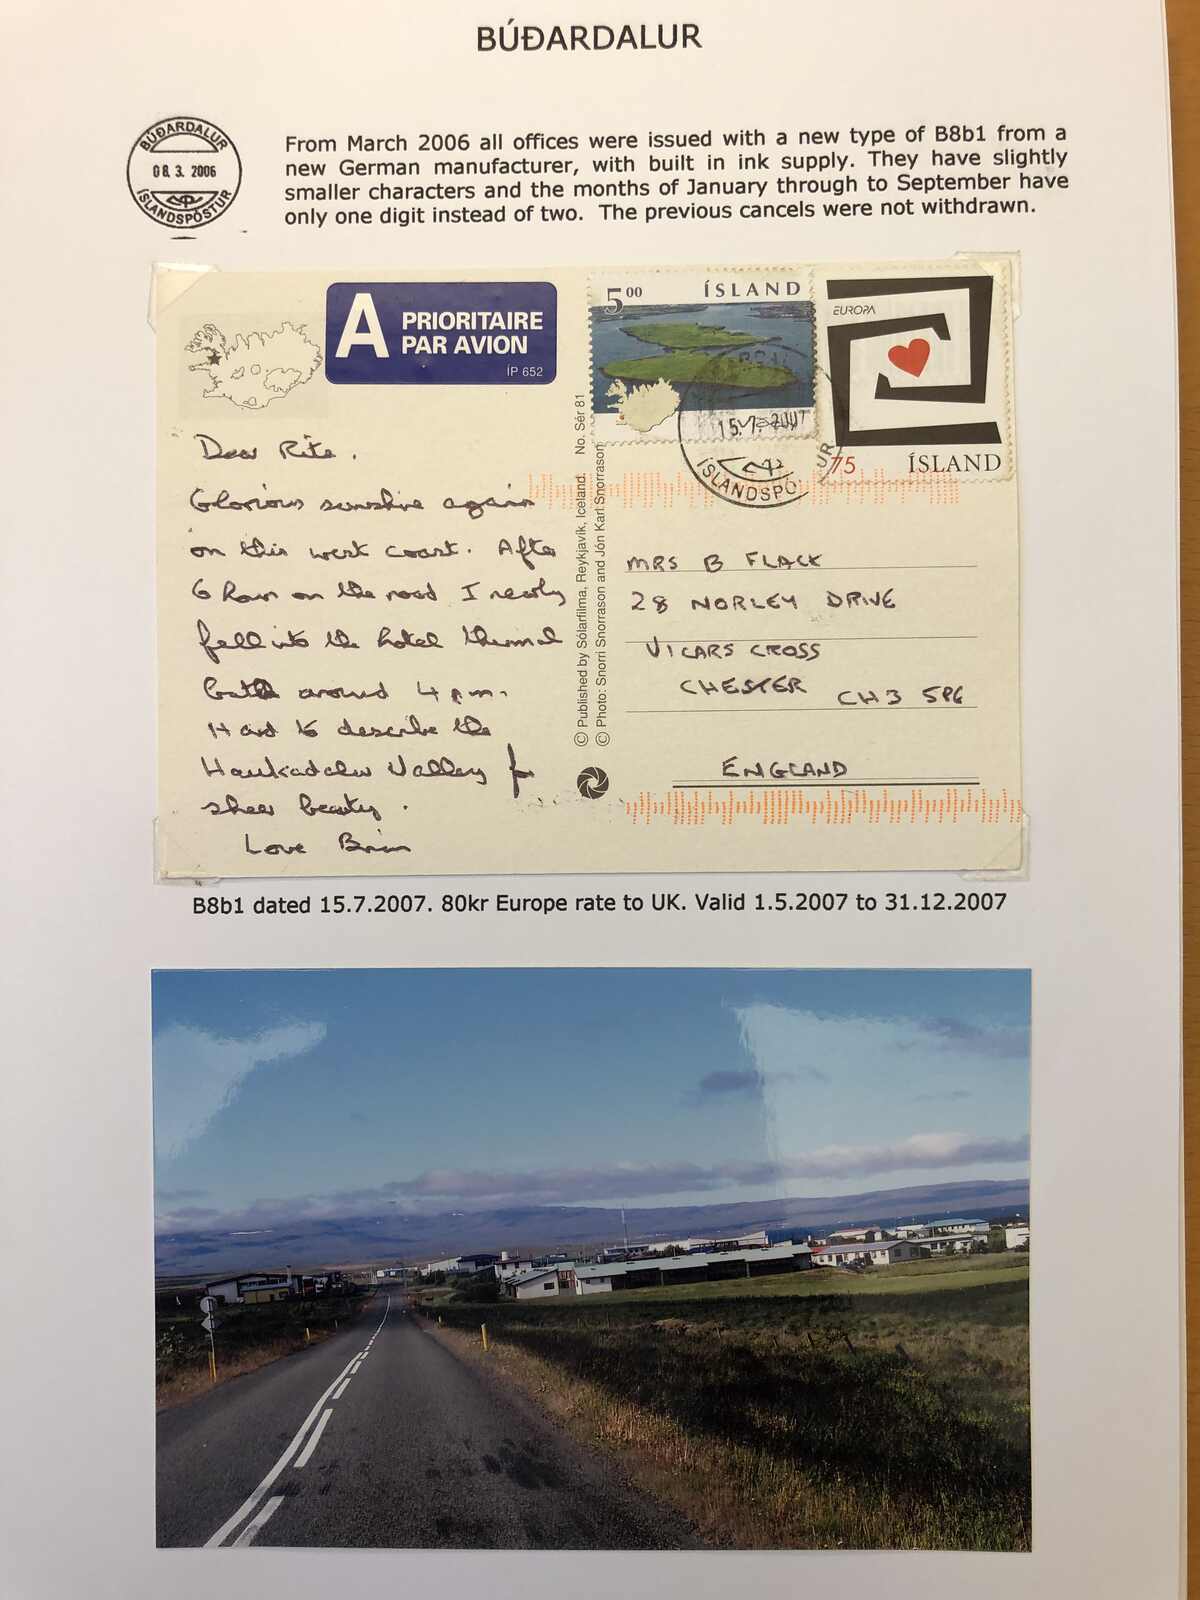 BÚÐARDALUR
BÚÐARDALUR
08. 3. 2006
ÍSLANDSPÓSTUR
From March 2006 all offices were issued with a new type of B8b1 from a
new German manufacturer, with built in ink supply. They have slightly
smaller characters and the months of January through to September have
only one digit instead of two. The previous cancels were not withdrawn.
A PRIORITAIRE
PAR AVION
ÍP 652
5 00 ÍSLAND
EUROPA
75 ÍSLAND
15.7.2007
ÍSLANDSPÓ UR
Dear Rita.
Glorious sunshine again
on this west coast. After
6 hours on the road I nearly
fell into the hotel thermal
bath around 4 pm.
Hard to describe the
Haukadalur Valley for
sheer beauty.
Love Brian
© Published by Sólarfilma, Reykjavík, Iceland. No. Sér 81
© Photo: Snorri Snorrason and Jón Karl Snorrason
MRS B FLACK
28 NORLEY DRIVE
VICARS CROSS
CHESTER CH3 5PG
ENGLAND
B8b1 dated 15.7.2007. 80kr Europe rate to UK. Valid 1.5.2007 to 31.12.2007